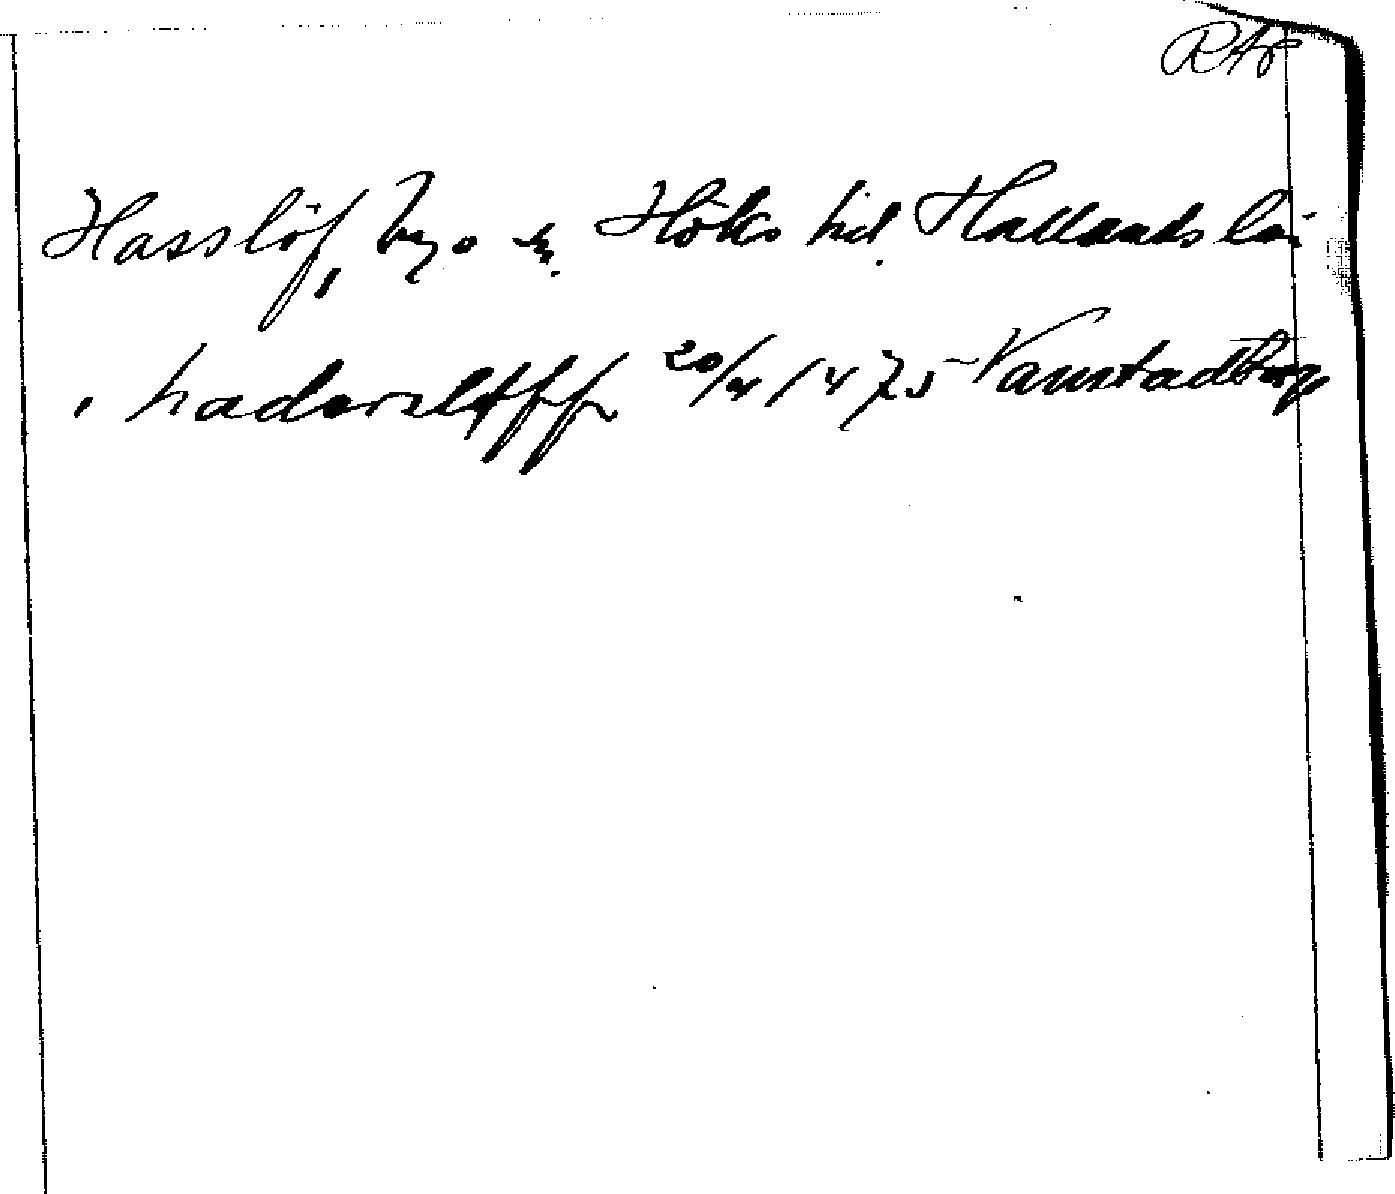 RAp
Hasslöf, by o sn. Höks hd. Hallands län
i hadersleff 20/4 1475 Vanstadtorp